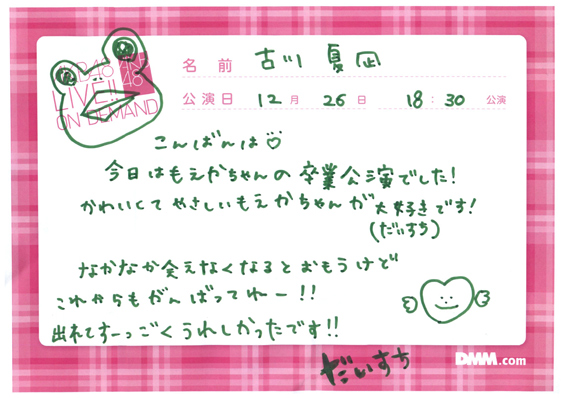 AKB48
LIVE!!
ON DEMAND
名前 古川 夏凪
公演日 12月 26日 18:30 公演
こんばんは♡
今日はもえかちゃんの卒業公演でした!
かわいくてやさしいもえかちゃんが大好きです!
(だいすち)
なかなか会えなくなるとおもうけど
これからもがんばってねー!!
出れてすーっごくうれしかったです!!
だいすち
DMM.com